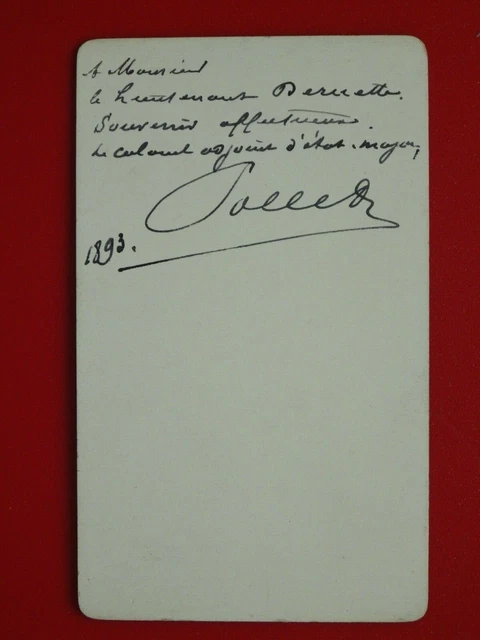 A Monsieur
le Lieutenant Pernette.
Souvenir affectueux.
Le colonel adjoint d'état-major,
1893.